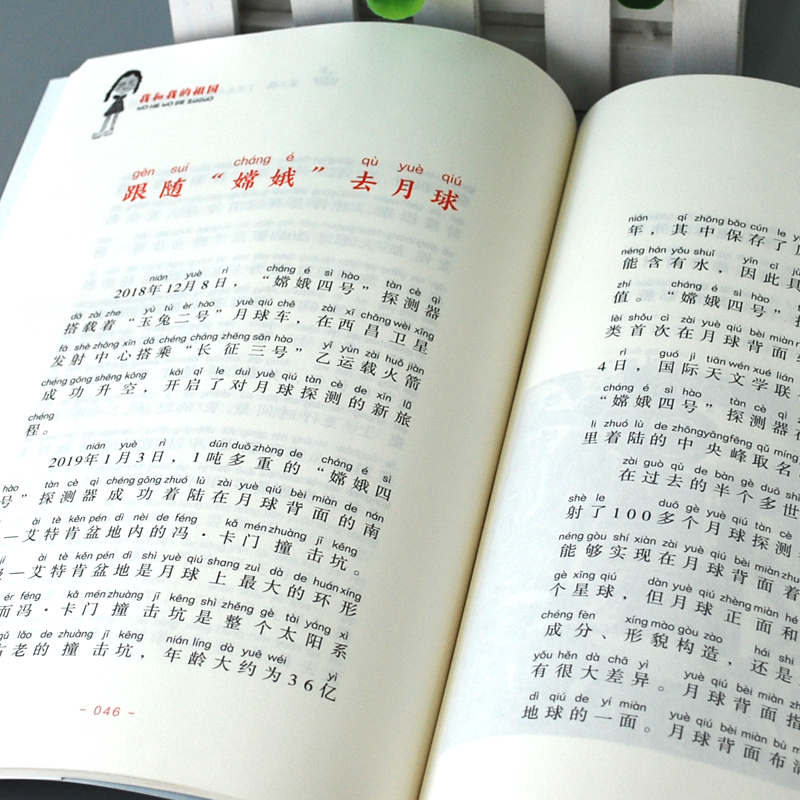 我和我的祖国
WO HE WO DE ZUGUO
gēn suí cháng é qù yuè qiú
跟随“嫦娥”去月球
nián yuè rì cháng é sì hào tàn cè qì
2018年12月8日，“嫦娥四号”探测器
dā zài zhe yù tù èr hào yuè qiú chē zài xī chāng wèi xīng
搭载着“玉兔二号”月球车，在西昌卫星
fā shè zhōng xīn dā chéng cháng zhēng sān hào yǐ yùn zài huǒ jiàn
发射中心搭乘“长征三号”乙运载火箭
chéng gōng shēng kōng kāi qǐ le duì yuè qiú tàn cè de xīn lǚ
成功升空，开启了对月球探测的新旅
chéng
程。
nián yuè rì dūn duō zhòng de cháng é sì
2019年1月3日，1吨多重的“嫦娥四
hào tàn cè qì chéng gōng zhuó lù zài yuè qiú bèi miàn de nán
号”探测器成功着陆在月球背面的南
ài tè kěn pén dì nèi de féng kǎ mén zhuàng jī kēng
—艾特肯盆地内的冯·卡门撞击坑。
jí ài tè kěn pén dì shì yuè qiú shang zuì dà de huán xíng
极—艾特肯盆地是月球上最大的环形
ér féng kǎ mén zhuàng jī kēng shì zhěng gè tài yáng xì
而冯·卡门撞击坑是整个太阳系
gǔ lǎo de zhuàng jī kēng nián líng dà yuē wéi yì
古老的撞击坑，年龄大约为36亿
- 046 -
nián qí zhōng bǎo cún le
年，其中保存了
néng hán yǒu shuǐ yīn cǐ jù
能含有水，因此具
zhí cháng é sì hào
值。“嫦娥四号”
lèi shǒu cì zài yuè qiú bèi miàn
类首次在月球背面
rì guó jì tiān wén xué lián
4日，国际天文学联
cháng é sì hào tàn cè qì
“嫦娥四号”探测器
li zhuó lù de zhōng yāng fēng qǔ míng
里着陆的中央峰取名
zài guò qù de bàn gè duō shì
在过去的半个多世
shè le duō gè yuè qiú tàn cè
射了100多个月球探测
néng gòu shí xiàn zài yuè qiú bèi miàn
能够实现在月球背面着
gè xīng qiú dàn yuè qiú zhèng miàn hé
个星球，但月球正面和
chéng fèn xíng mào gòu zào hái shi
成分、形貌构造，还是
yǒu hěn dà chā yì yuè qiú bèi miàn zhǐ
有很大差异。月球背面指
dì qiú de yí miàn yuè qiú bèi miàn bù
地球的一面。月球背面布满